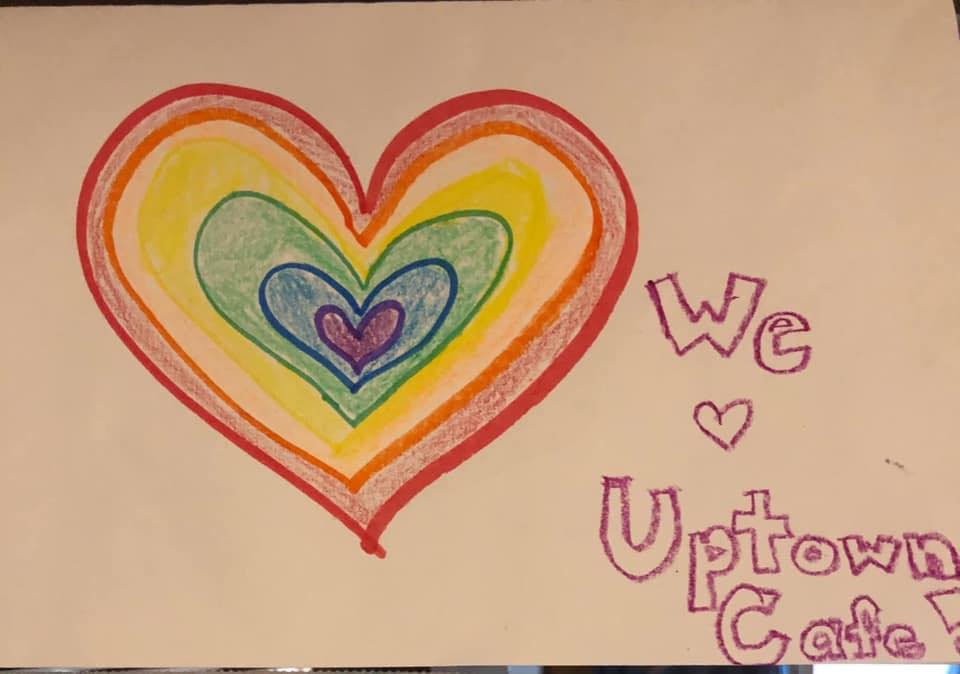 We
♡
Uptown
Cafe!